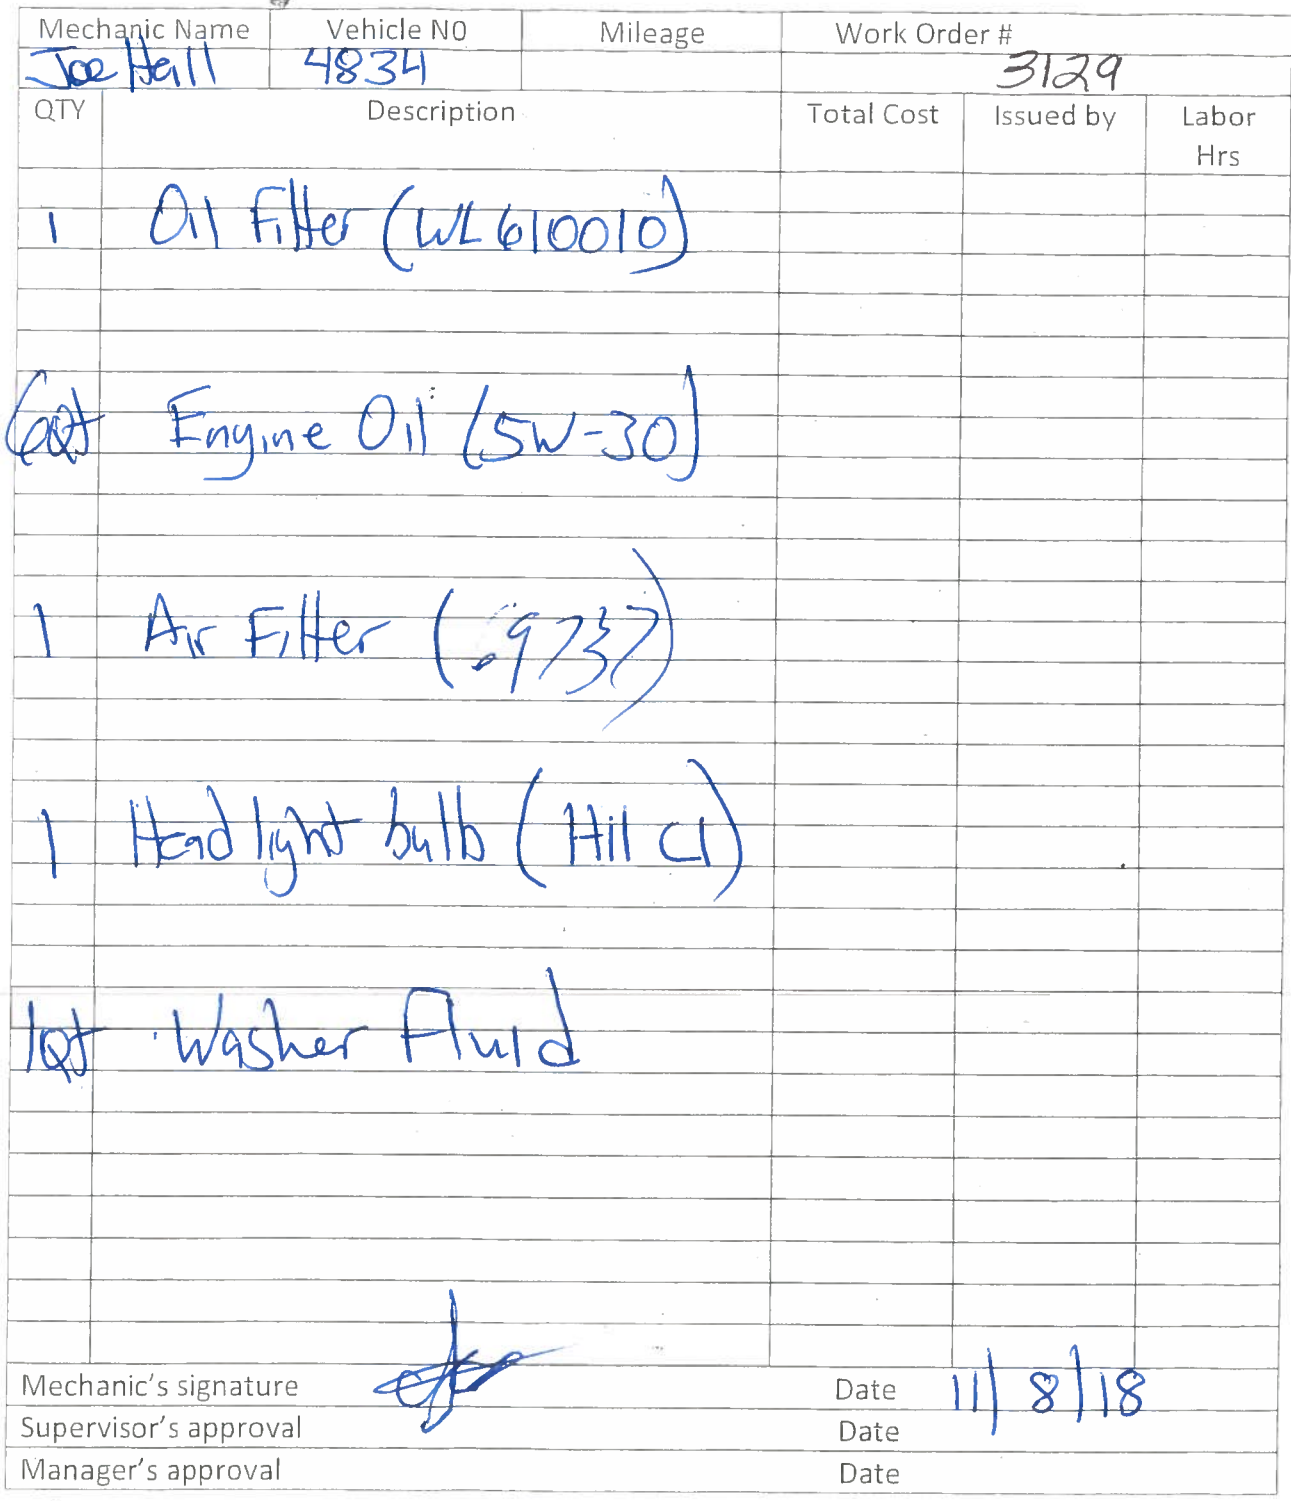 Mechanic Name Vehicle NO Mileage Work Order #
Joe Hall 4834 3129
QTY Description Total Cost Issued by Labor Hrs
1 Oil Filter (WL610010)
6Qt Engine Oil (5W-30)
1 Air Filter (.9737)
1 Headlight bulb (Hil Cl)
1Qt Washer Fluid
Mechanic's signature Date 11/8/18
Supervisor's approval Date
Manager's approval Date